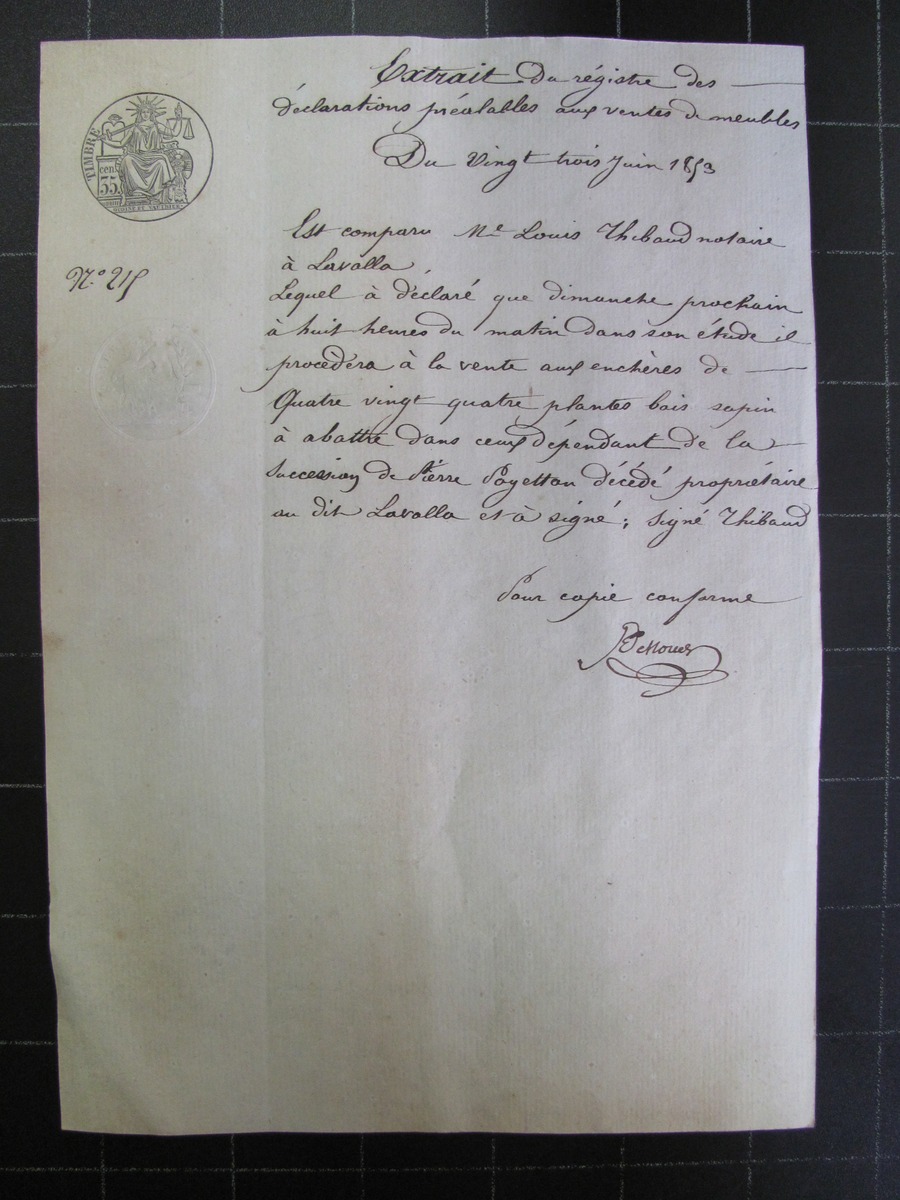 Extrait Du régistre des
déclarations préalables aux ventes de meubles
Du Vingt trois Juin 1853
TIMBRE
cen.
35
Est comparu Me Louis Thibaud notaire
à Lavalla
N.o 215
Lequel à déclaré que dimanche prochain
à huit heures du matin dans son étude il
procèdera à la vente aux enchères de
Quatre vingt quatre plantes bois sapin
à abattre dans ceux dépendant de la
Succession de Pierre Payetton décédé propriétaire
au dit Lavalla et à signé; signé Thibaud
Pour copie conforme